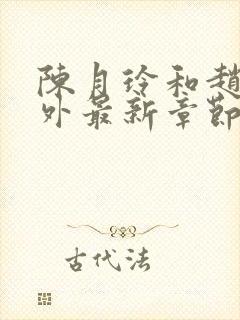 陳月玲和趙
外最新章節
古代法